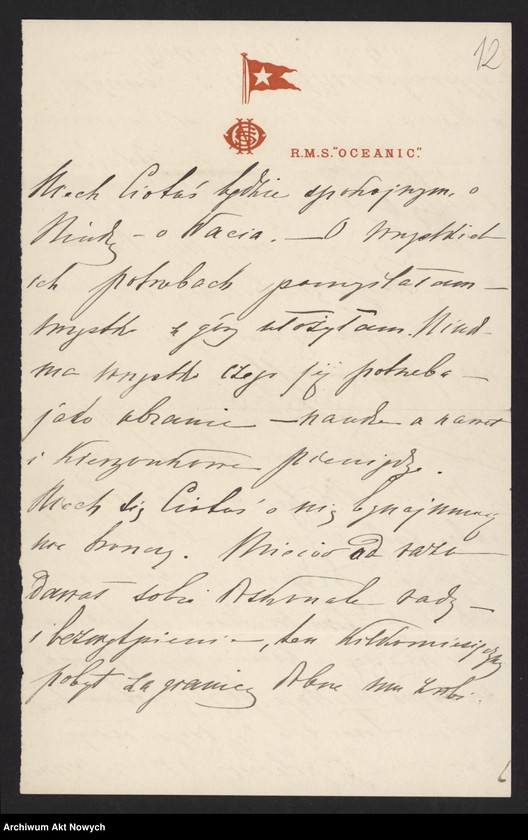 12
R.M.S. "OCEANIC."
Niech Ciotuś będzie spokojnym, o
– o Wacia. — O wszystkich
ich potrzebach pomyślałam –
wszystko z góry ułożyłam.
ma wszystko czego jej potrzeba –
jako ubranie – nauka a nawet
i kieszonkowe pieniądze.
Niech się Ciotuś o nią bynajmniej
nie troszczy. Miecio od razu
dawał sobie doskonale radę –
i bezwątpienia –, ten kilkomiesięczny
pobyt za granicą dobrze mu zrobi.
Archiwum Akt Nowych